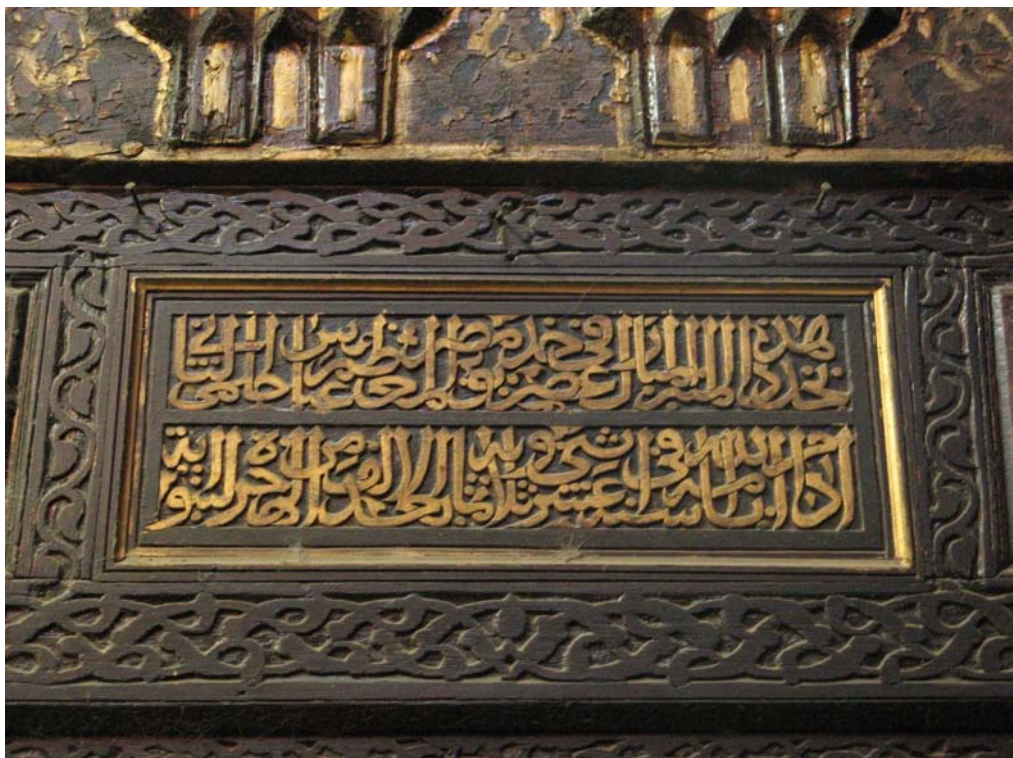 تجدد هذا المنبر المبارك في عصر خديو مصر المعظم عباس حلمي الثاني
أدام الله أيامه في سنة عشر وثلاثمائة بعد الالف من الهجرة النبوية